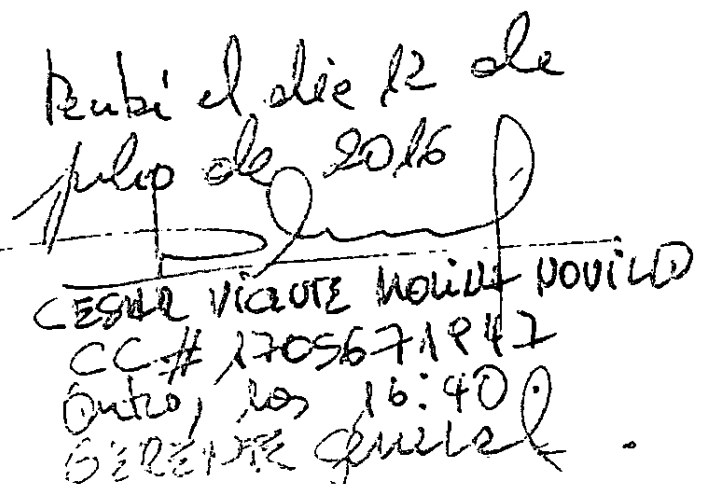 Recibí el día 12 de
julio de 2016
CESAR VICENTE MOLINA NOVILLO
CC# 1705671947
Quito, las 16:40.
GERENTE General.